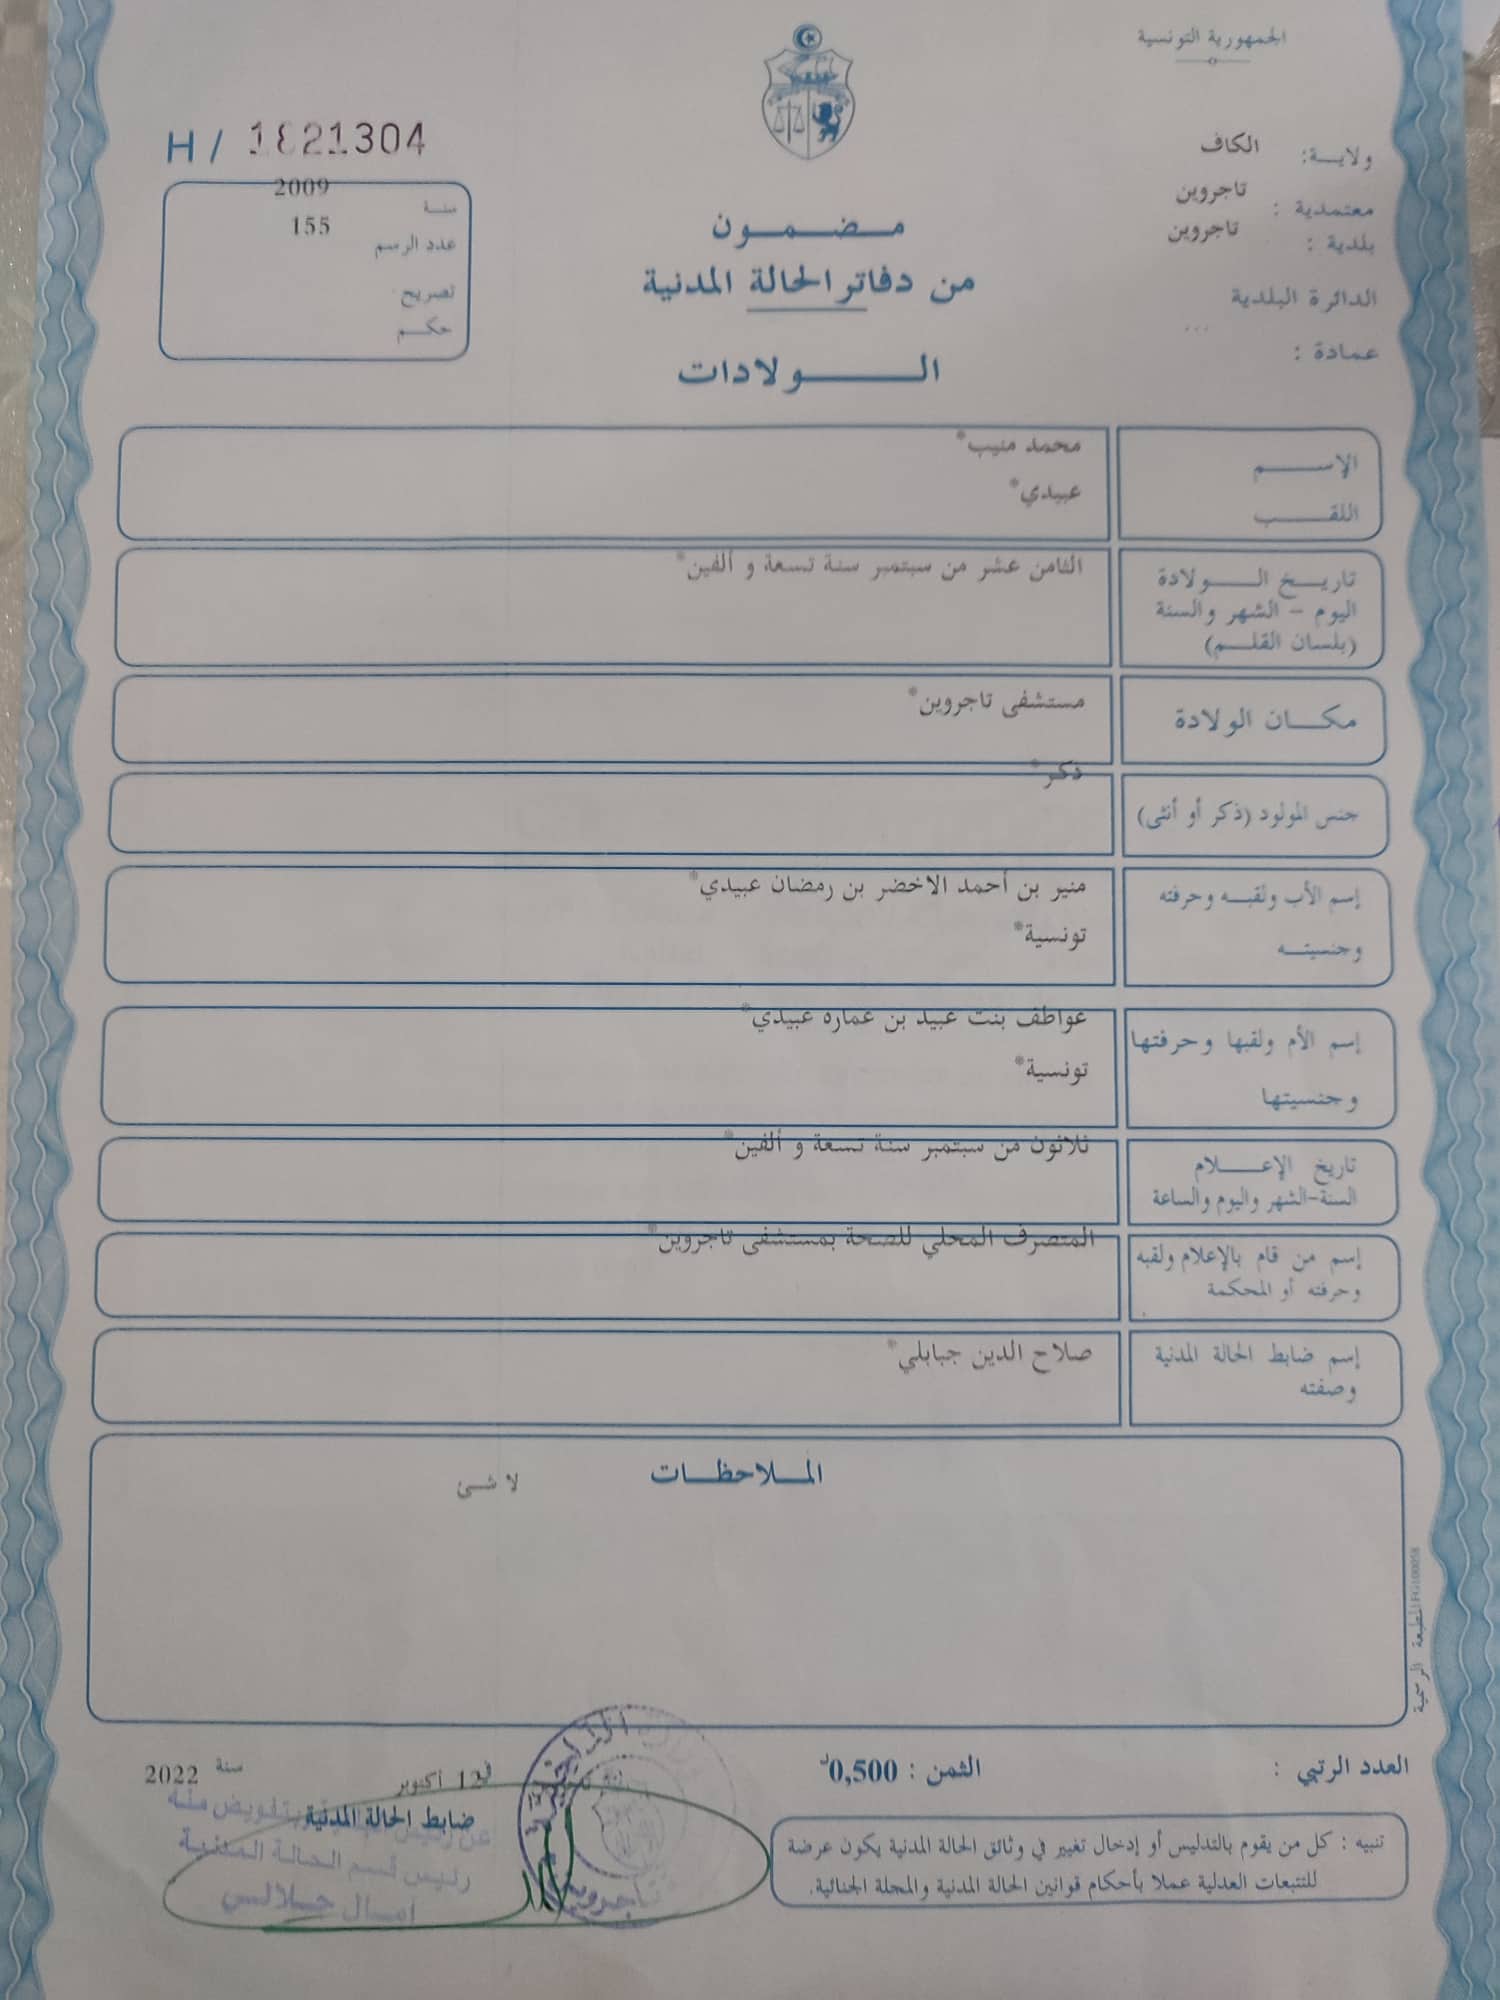 الجمهورية التونسية
ولايـــة: الكاف
معتمدية : تاجروين
بلدية : تاجروين
الدائرة البلدية
...
عمادة :
H / 1821304
سنـة 2009
عدد الرسم 155
تصريح
حكــم
مـــضـــمـــون
من دفاتر الحالة المدنية
الــــــولادات
الإســــم محمد منيب*
اللقــــب عبيدي*
تاريــخ الــــولادة الثامن عشر من سبتمبر سنة تسعة و ألفين*
اليوم - الشهر والسنة
(بلسان القلــم)
مكـــان الولادة مستشفى تاجروين*
جنس المولود (ذكر أو أنثى) ذكر*
إسم الأب ولقبــه وحرفته منير بن أحمد الاخضر بن رمضان عبيدي*
وجنسيتــه تونسية*
إسم الأم ولقبها وحرفتها عواطف بنت عبيد بن عماره عبيدي*
وجنسيتها تونسية*
تاريخ الإعـــلام ثلاثون من سبتمبر سنة تسعة و ألفين*
السنة-الشهر واليوم والساعة
إسم من قام بالإعلام ولقبه المتصرف المحلي للصحة بمستشفى تاجروين*
وحرفته أو المحكمة
إسم ضابط الحالة المدنية صلاح الدين جبابلي*
وصفته
المــلاحظــات
لا شئ
المطبعة الرسمية FG100058
العدد الرتبي :
الثمن : 0,500د
في 12 أكتوبر سنة 2022
ضابط الحالة المدنية
بتفويض منه
رئيس قسم الحالة المدنية
امــال جــلالــي
تاجروين
تنبيه : كل من يقوم بالتدليس أو إدخال تغيير في وثائق الحالة المدنية يكون عرضة
للتتبعات العدلية عملا بأحكام قوانين الحالة المدنية والمجلة الجنائية.